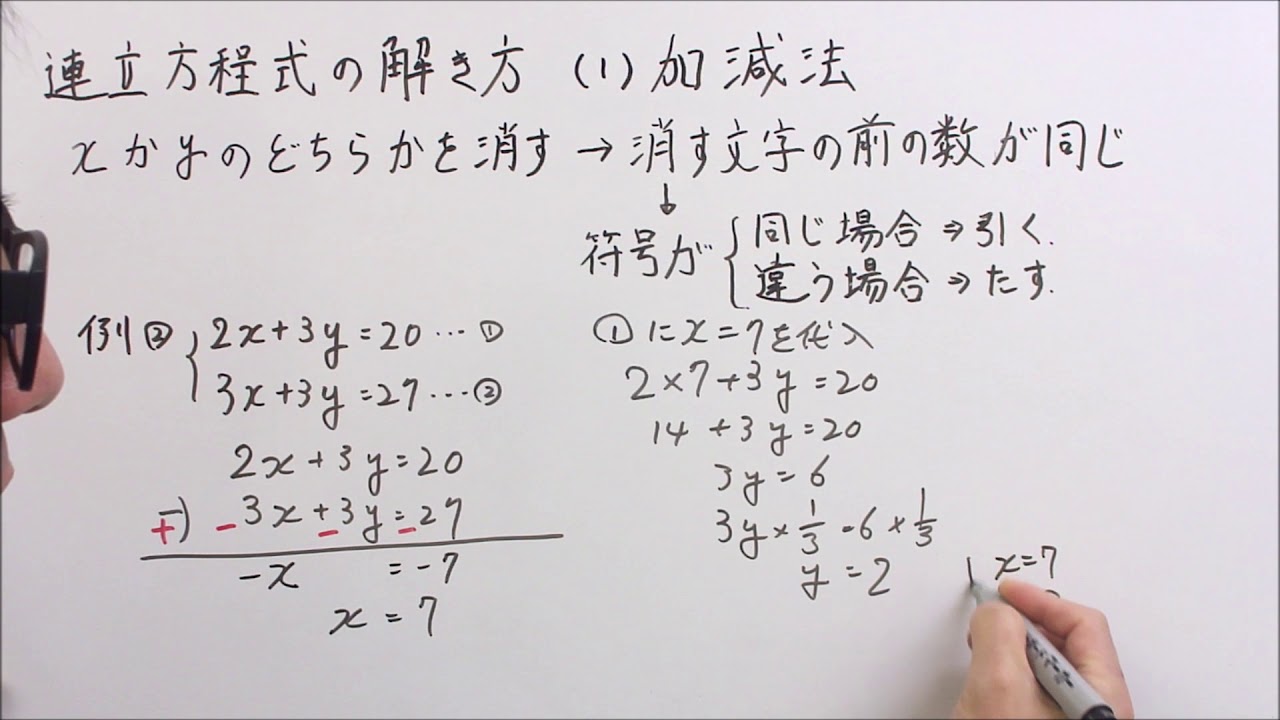 連立方程式の解き方 (1) 加減法
xかyのどちらかを消す → 消す文字の前の数が同じ
↓
符号が { 同じ場合 ⇒ 引く.
違う場合 ⇒ たす.
例② { 2x+3y=20 … ①
3x+3y=27 … ②
2x+3y=20
+ -) - 3x+3y=27 - -
-x =-7
x=7
①にx=7を代入
2×7+3y=20
14+3y=20
3y=6
3y×1/3=6×1/3
y=2
x=7